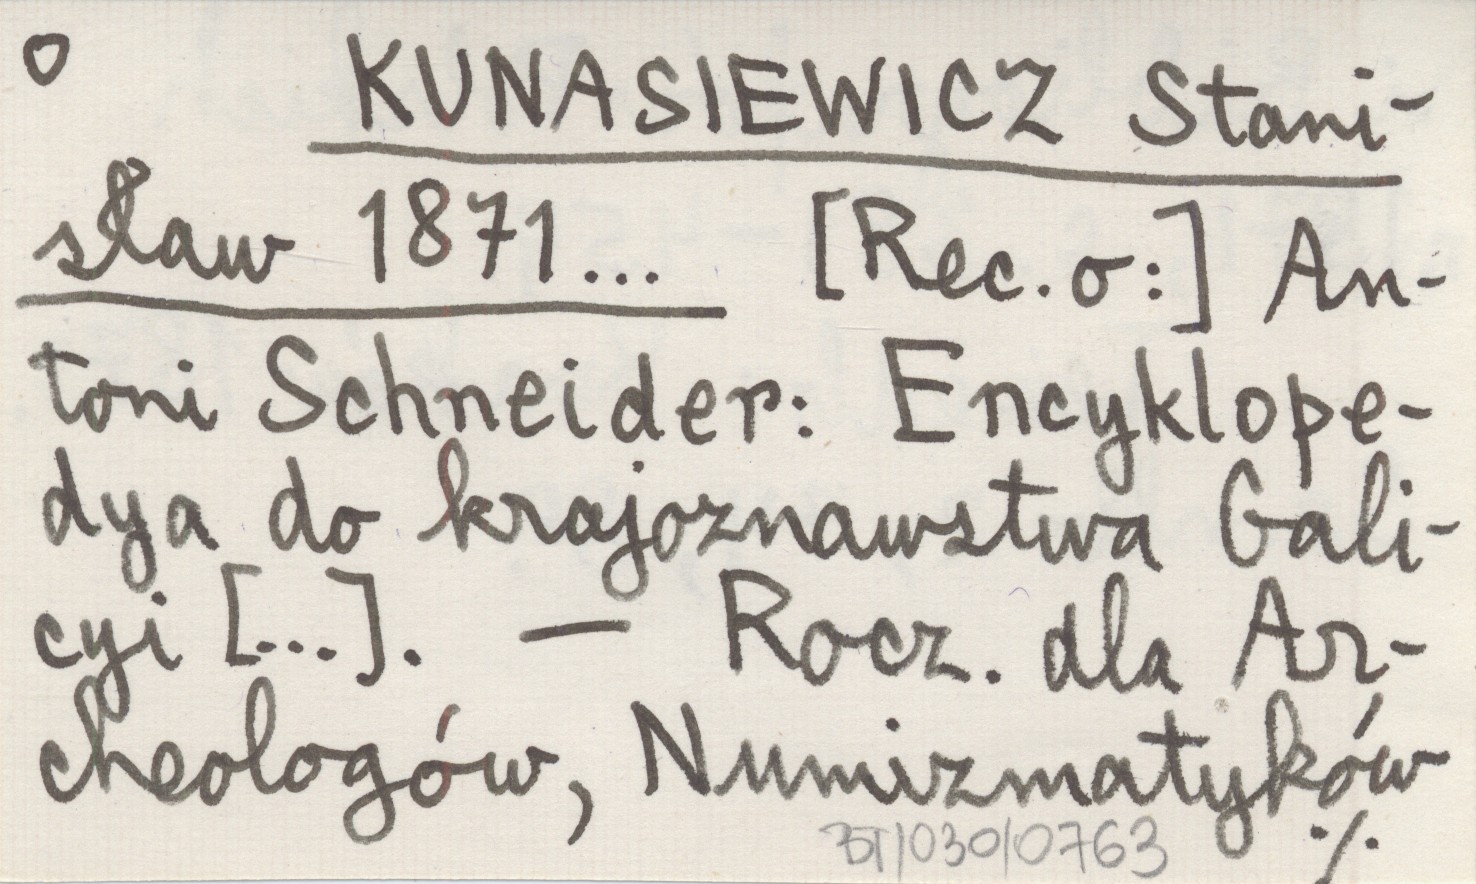 o KUNASIEWICZ Stani-
sław 1871... [Rec. o:] An-
toni Schneider: Encyklope-
dya do krajoznawstwa Gali-
cyi [...]. — Rocz. dla Ar-
cheologów, Numizmatyków
BT/030/0763 ./.